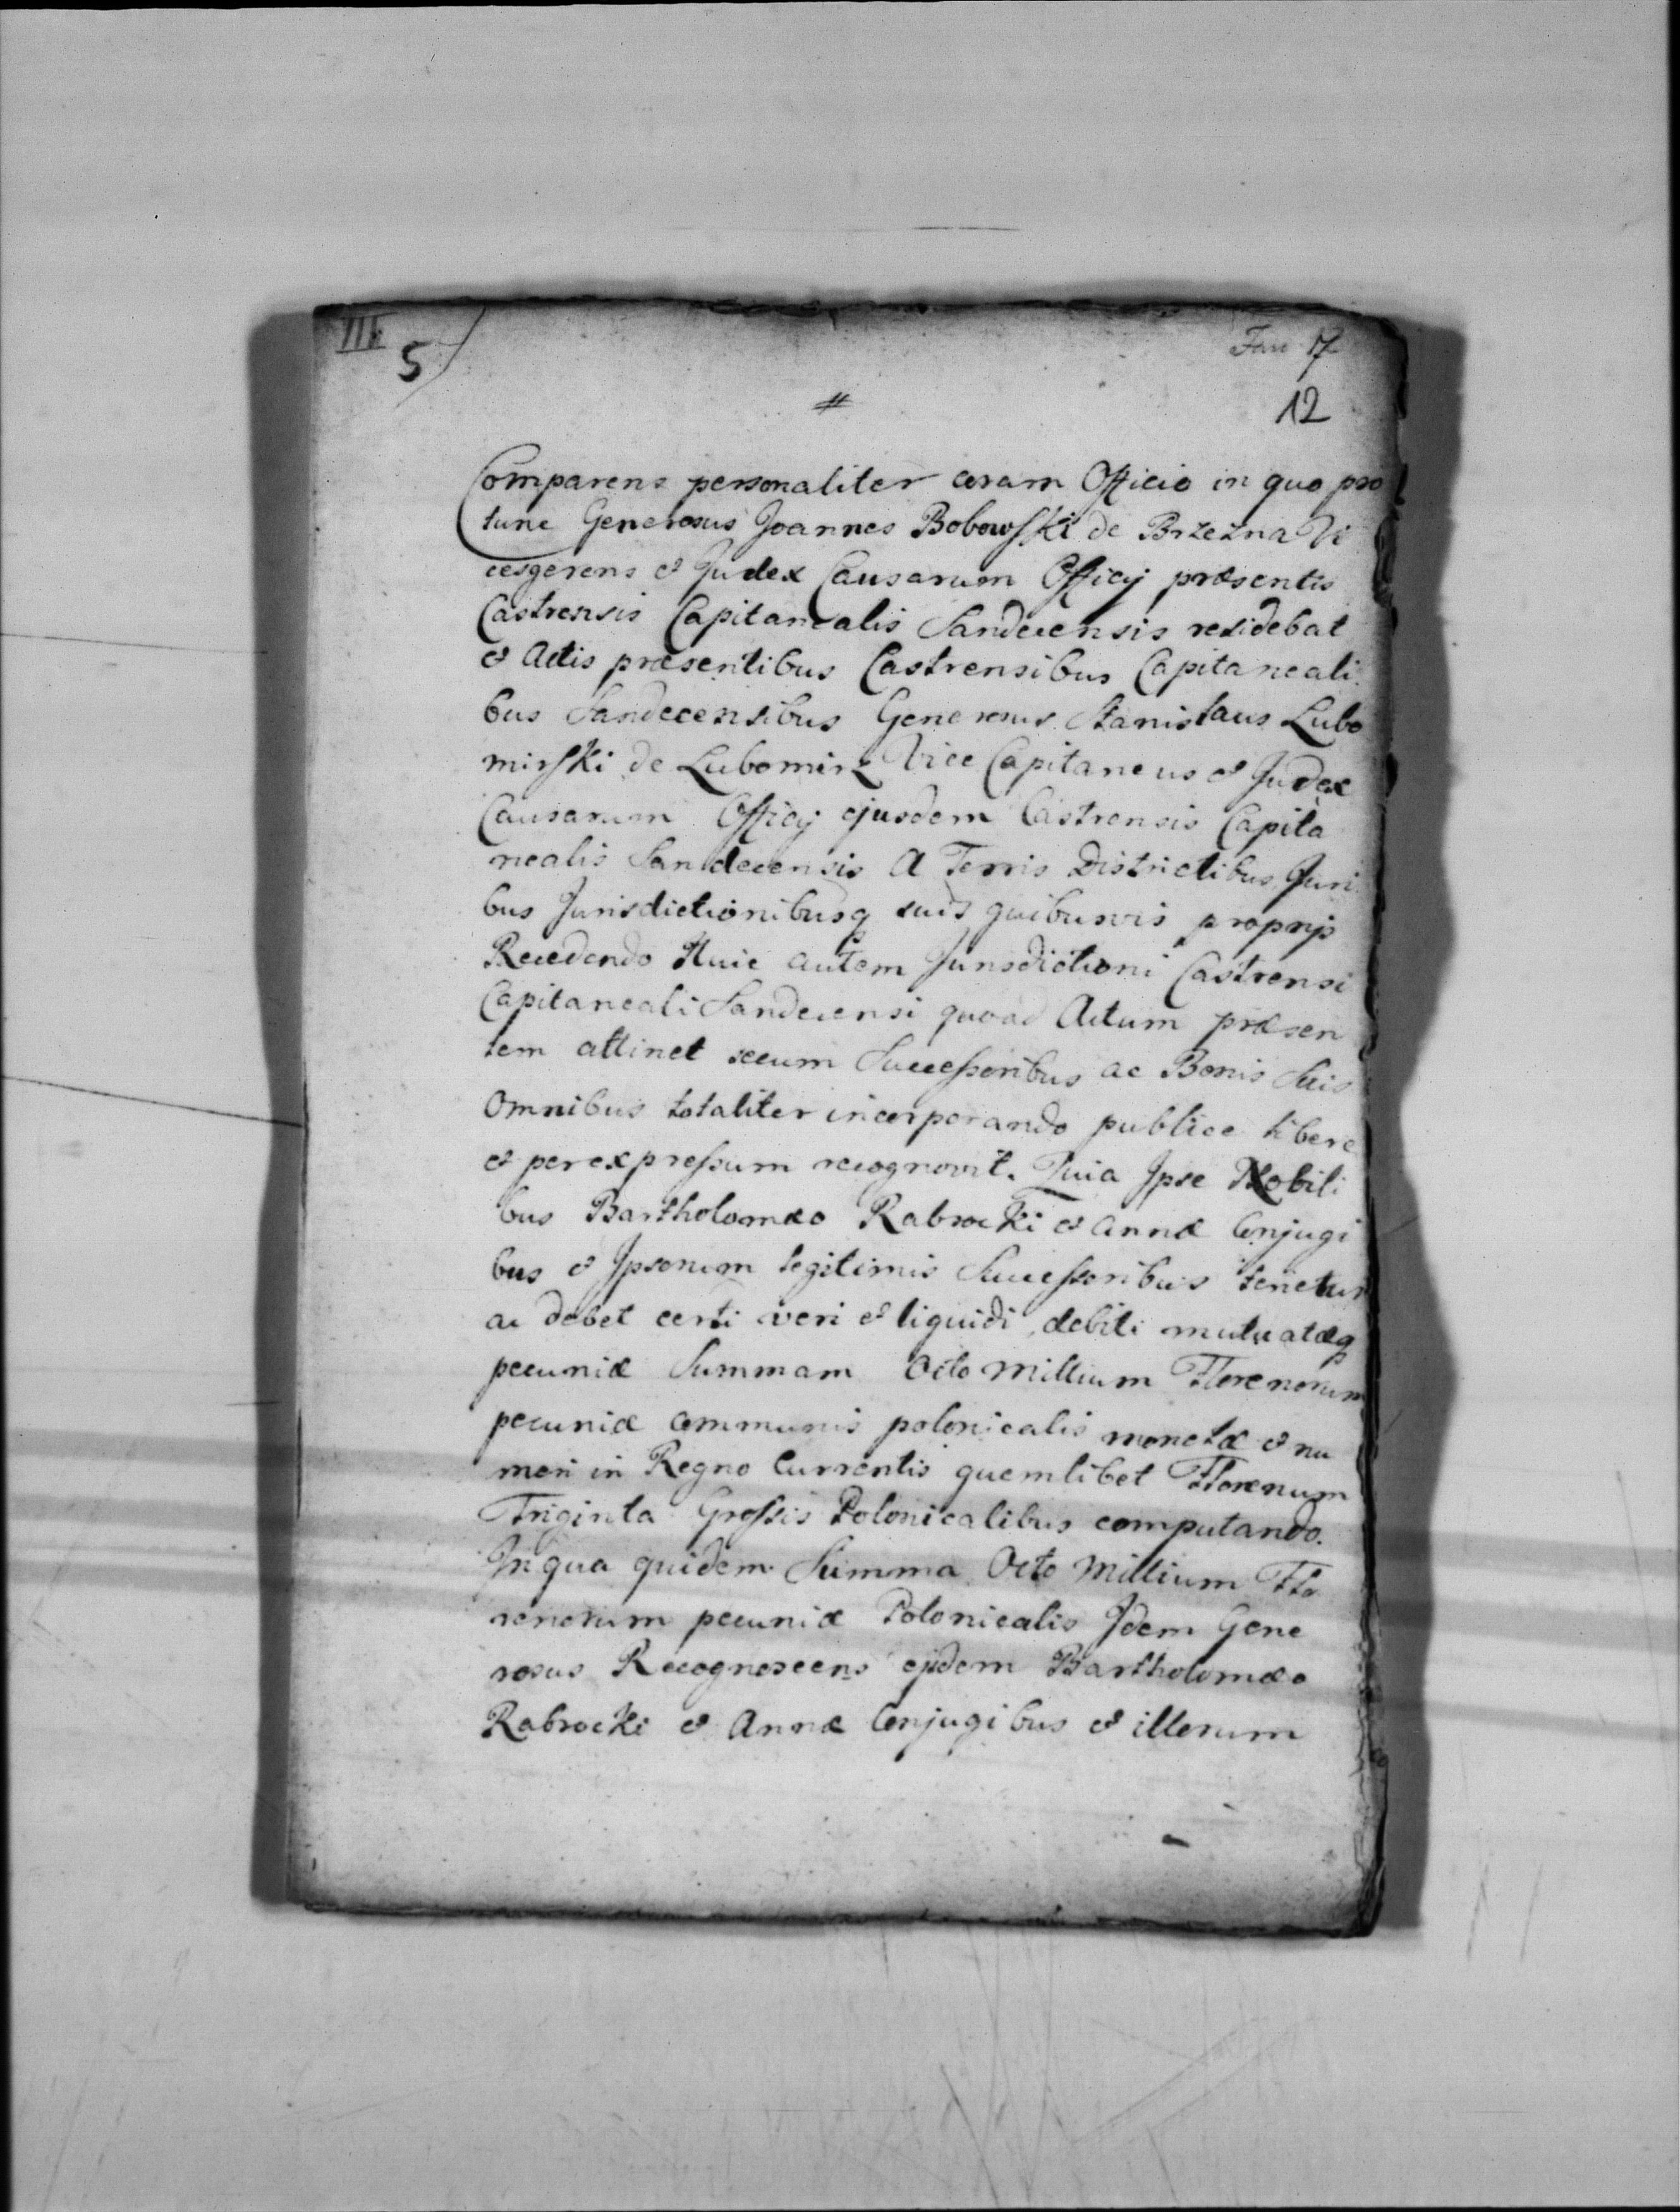 III
5
Fau 17
12
#
Comparens personaliter coram Officio in quo pro
tunc Generosus Joannes Bobowski de Brzezna Vi
cesgerens et Judex Causarum Officij præsentis
Castrensis Capitanealis Sandecensis residebat
et Actis præsentibus Castrensibus Capitaneali
bus Sandecensibus Generosus Stanislaus Lubo
mirski de Lubomirz Vice Capitaneus et Judex
Causarum Officij ejusdem Castrensis Capita
nealis Sandecensis A Terris Districtibus Juri
bus Jurisdictionibusq suis quibusvis proprijs
Recedendo Huic autem Jurisdictioni Castrensi
Capitaneali Sandecensi quoad Actum præsen
tem attinet secum Successoribus ac Bonis Suis
Omnibus totaliter incorporando publice libere
et per expressum recognovit. Quia Ipse Nobili
bus Bartholomæo Rabrocki et Annæ Conjugi
bus et Ipsorum legitimis Successoribus tenetur
ac debet certi veri et liquidi, debiti mutuatæq
pecuniæ Summam Octo Millium Florenorum
pecuniæ communis polonicalis monetæ et nu
meri in Regno Currentis quemlibet Florenum
Triginta Grossis Polonicalibus computando.
In qua quidem Summa Octo Millium Flo
renorum pecuniæ Polonicalis Idem Gene
rosus Recognoscens ejsdem Bartholomæo
Rabrocki et Annæ Conjugibus et illorum